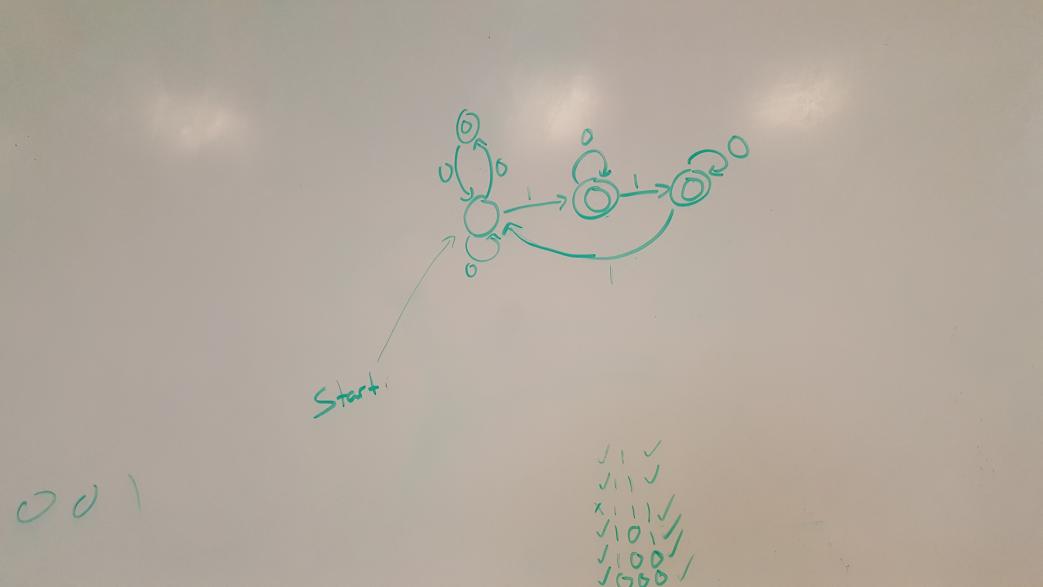 0
0 0
1
0
1
0
0
1
Start.
✓ 1 ✓
✓ 1 1 ✓
x 1 1 1 ✓
✓ 1 0 1 ✓
✓ 1 0 0 ✓
✓ 0 0 0 ✓
0 0 1